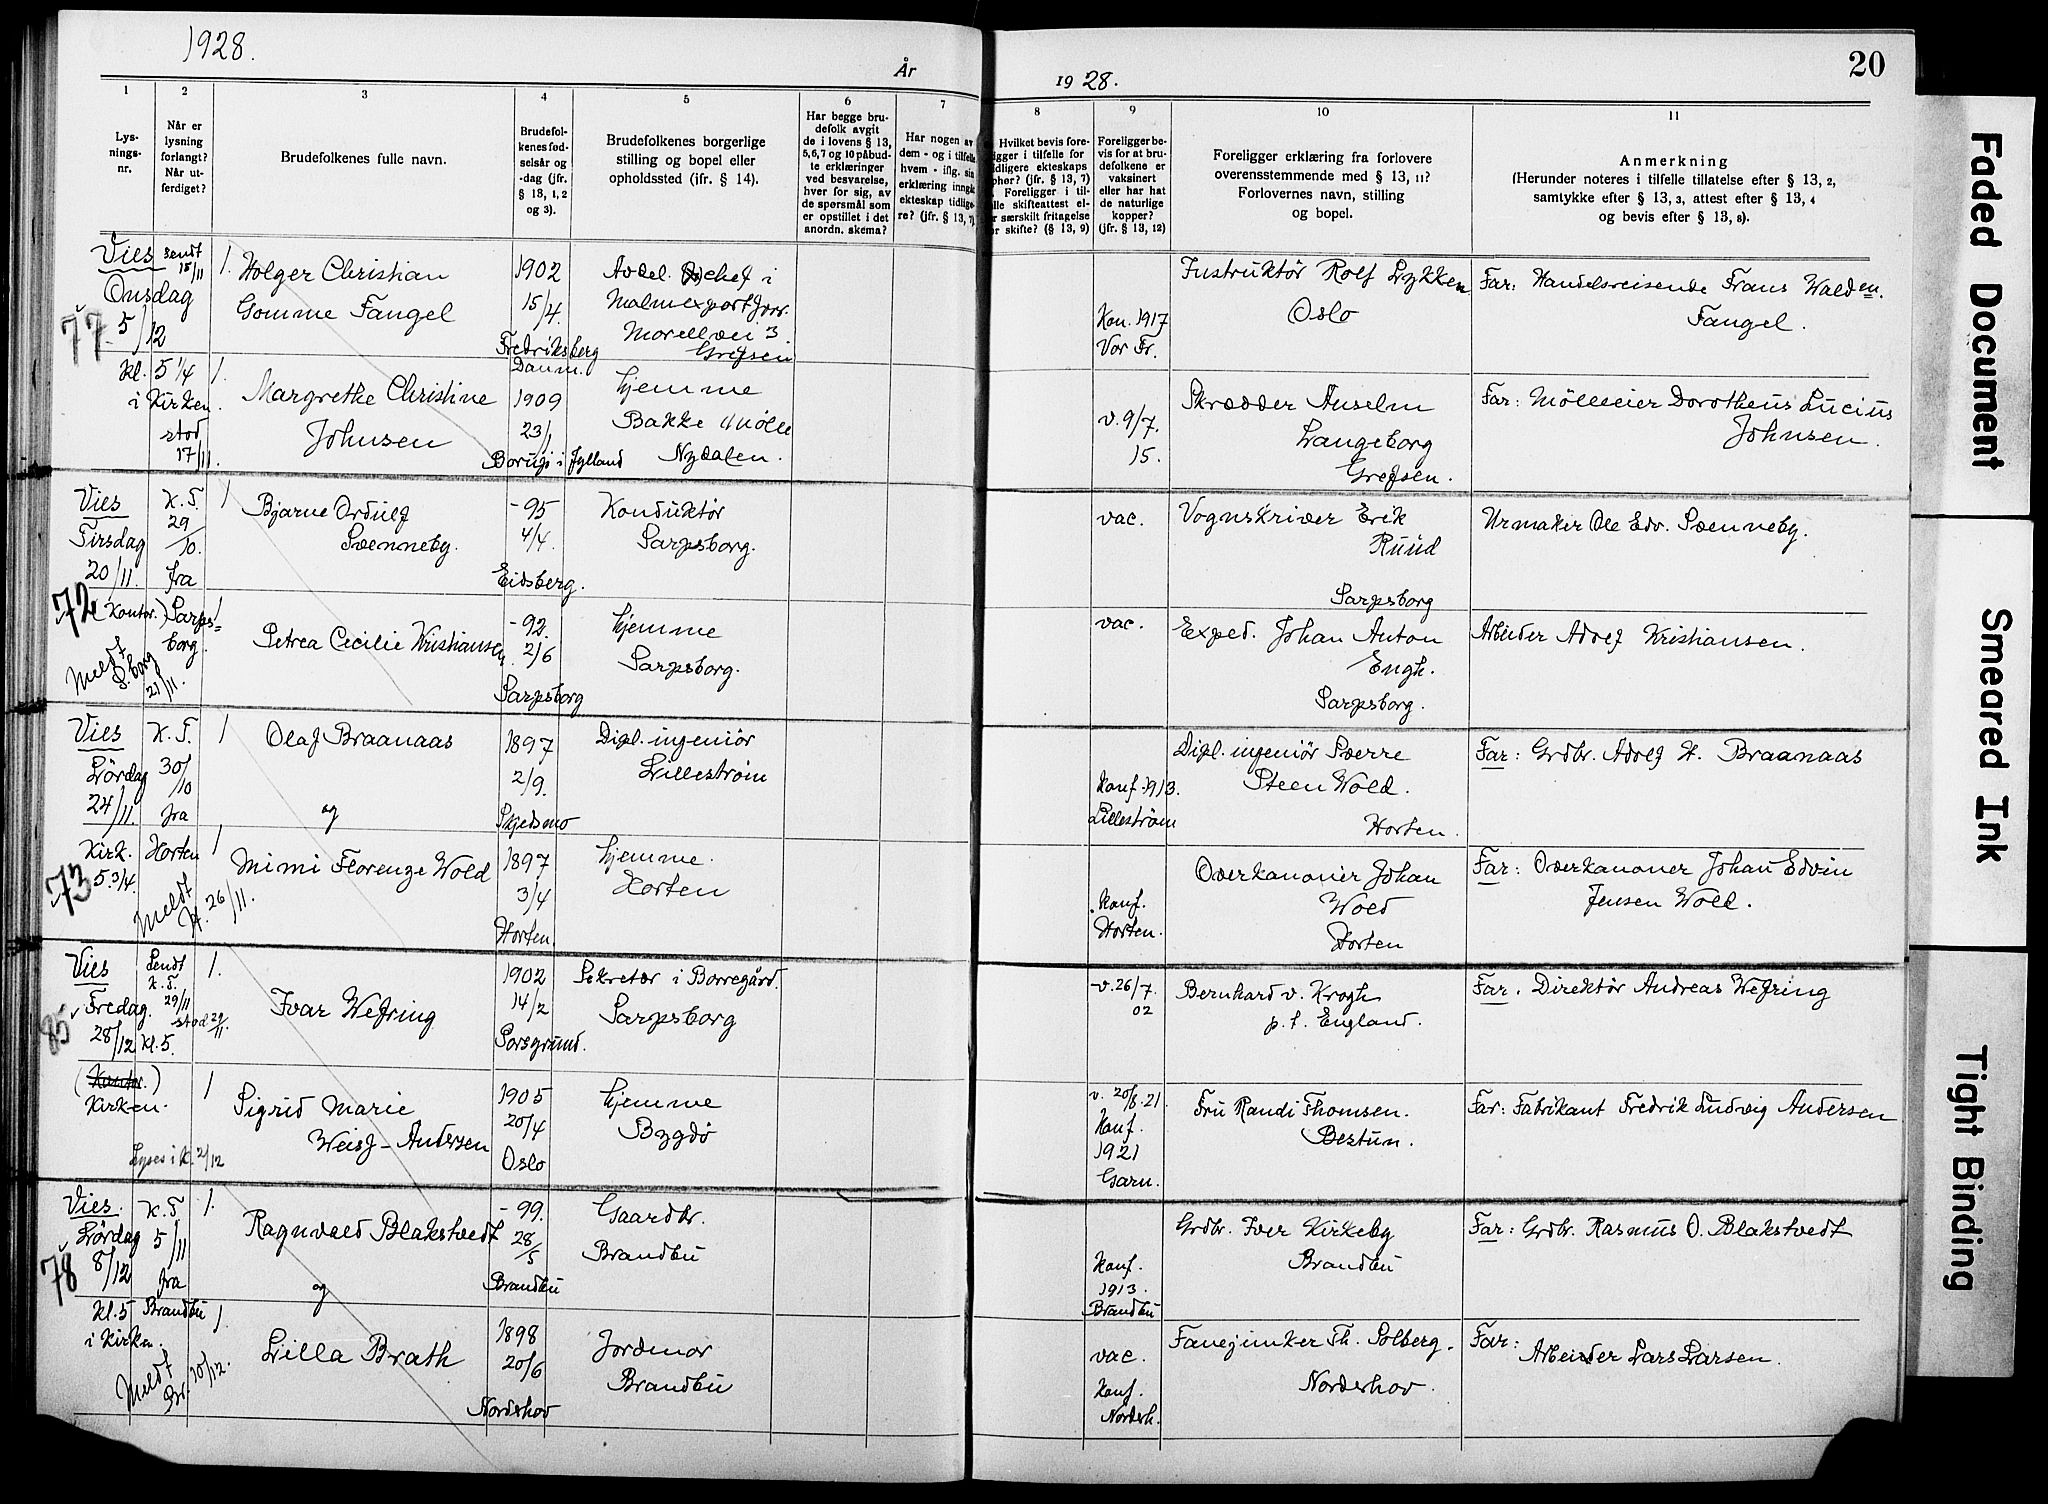 1928.
År
1928.
20
1
2
3
4
5
6
7
8
9
10
11
Lys-
nings-
nr.
Når er
lysning
forlangt?
Når ut-
ferdiget?
Brudefolkenes fulle navn.
Brudefol-
kenes fød-
selsår og
-dag (jfr.
§ 13, 1, 2
og 3).
Brudefolkenes borgerlige
stilling og bopel eller
opholdssted (ifr. § 14).
Har begge bru-
defolk avgit
de i lovens § 13,
5, 6, 7 og 10 påbud-
te erklæringer
ved besvarelse,
hver for sig, av
de spørsmål som
er opstillet i det
anordn. skema?
Har nogen av
dem - og i tilfelle
hvem - iflg. sin
erklæring inngk
ekteskap tidlige-
re? (jfr. § 13, 7)
Hvilket bevis fore-
igger i tilfelle for
idligere ekteskaps
phør? (jfr. § 13, 7)
Foreligger i til-
lle skifteattest el-
r særskilt fritagelse
or skifte? (§ 13, 9)
Foreligger be-
vis for at bru-
defolkene er
vaksinert
eller har hat
de naturlige
kopper?
(jfr. § 13, 12)
Foreligger erklæring fra forlovere
overensstemmende med § 13, 11?
Forlovernes navn, stilling
og bopel.
Anmerkning
(Herunder noteres i tilfelle tillatelse efter § 13, 2,
samtykke efter § 13, 3, attest efter § 13, 4
og bevis efter § 13, 8).
77
Vies
Onsdag
5/12
kl. 5 1/4
i Kirken.
sendt
15/11
stod
17/11.
1.
Holger Christian
Gomme Fangel
1902
15/4.
Fredriksberg
Danm.
Avdel. chef i
Malmexportforr.
Morellvei 3.
Grefsen
Kon. 1917
Vor Fr.
Instruktør Rolf Lykken
Oslo
Far: Handelsreisende Frans Walden.
Fangel.
1.
Margrethe Christine
Johnsen
1909
23/1
Borup i Jylland
hjemme
Bakke Mølle
Nydalen.
v. 9/7.
15.
Skrædder Anselm
Langeborg
Grefsen.
Far: Mølleeier Dorotheus Lucius
Johnsen.
72
Vies
Tirsdag
20/11.
(Kontor.)
Meldt
S.borg
21/11.
K. T.
29
/10.
fra
Sarps-
borg.
1
Bjarne Ordulf
Svenneby.
- 95
4/4.
Eidsberg.
Konduktør
Sarpsborg.
vac.
Vognskriver Erik
Ruud
Sarpsborg
Urmaker Ole Edv. Svenneby.
1
Petrea Cecilie Kristiansen
- 92.
2/6
Sarpsborg
hjemme
Sarpsborg.
vac.
Exped. Johan Anton
Engh.
Sarpsborg.
Arbeider Adolf Kristiansen.
73
Vies
Lørdag
24/11.
Kirk.
5.3/4.
K. T.
30/
10
fra
Horten
Meldt
H. 26/11.
1
Olaf Braanaas
og
1897
2/9.
Skjedsmo
Dipl. ingeniør
Lillestrøm
Konf. 1913.
Lillestrøm
Dipl. ingeniør Sverre
Steen Wold.
Horten.
Far: Grdbr. Adolf H. Braanaas
1
Mimi Florenze Wold
1897
3/4
Horten.
hjemme.
Horten
Konf.
Horten.
Overkanoner Johan
Wold
Horten
Far: Overkanoner Johan Edvin
Jensen Wold.
85
Vies
Fredag.
28/12 kl. 5.
(Kontor.)
Kirken.
Sendt
K. T.
29/11
stod 29/11.
Lyses i K. 2/12
1.
Ivar Wefring
1902
14/2
Porsgrund.
Sekretær i Borregård.
Sarpsborg
v. 26/7.
02
Bernhard v. Krogh
p. t. England.
Far. Direktør Andreas Wefring
1
Sigrid Marie
Weisz-Andersen
1905
20/4
Oslo
hjemme
Bygdø
v. 20/8.21.
Konf.
1921
Garn.
Fru Randi Thomsen.
Bestun.
Far: Fabrikant Fredrik Ludvig Andersen
78
Vies.
Lørdag
8/12
kl. 5
i Kirken.
K. T
5/11
fra
Brandbu
Meldt
Br. 10/12.
1.
Ragnvald Blakstvedt
og
- 99.
28/5
Brandbu
Gaardbr.
Brandbu
Konf.
1913.
Brandbu
Grdbr. Iver Kirkeby
Brandbu
Far: Grdbr. Rasmus O. Blakstvedt
1.
Lilla Brath
1898
20/6
Norderhov
Jordmor
Brandbu
vac.
Konf.
Norderh.
Fanejunker Th. Solberg.
Norderhov.
Far:
Arbeider Lars Larsen.
Faded Document
Smeared Ink
Tight Binding